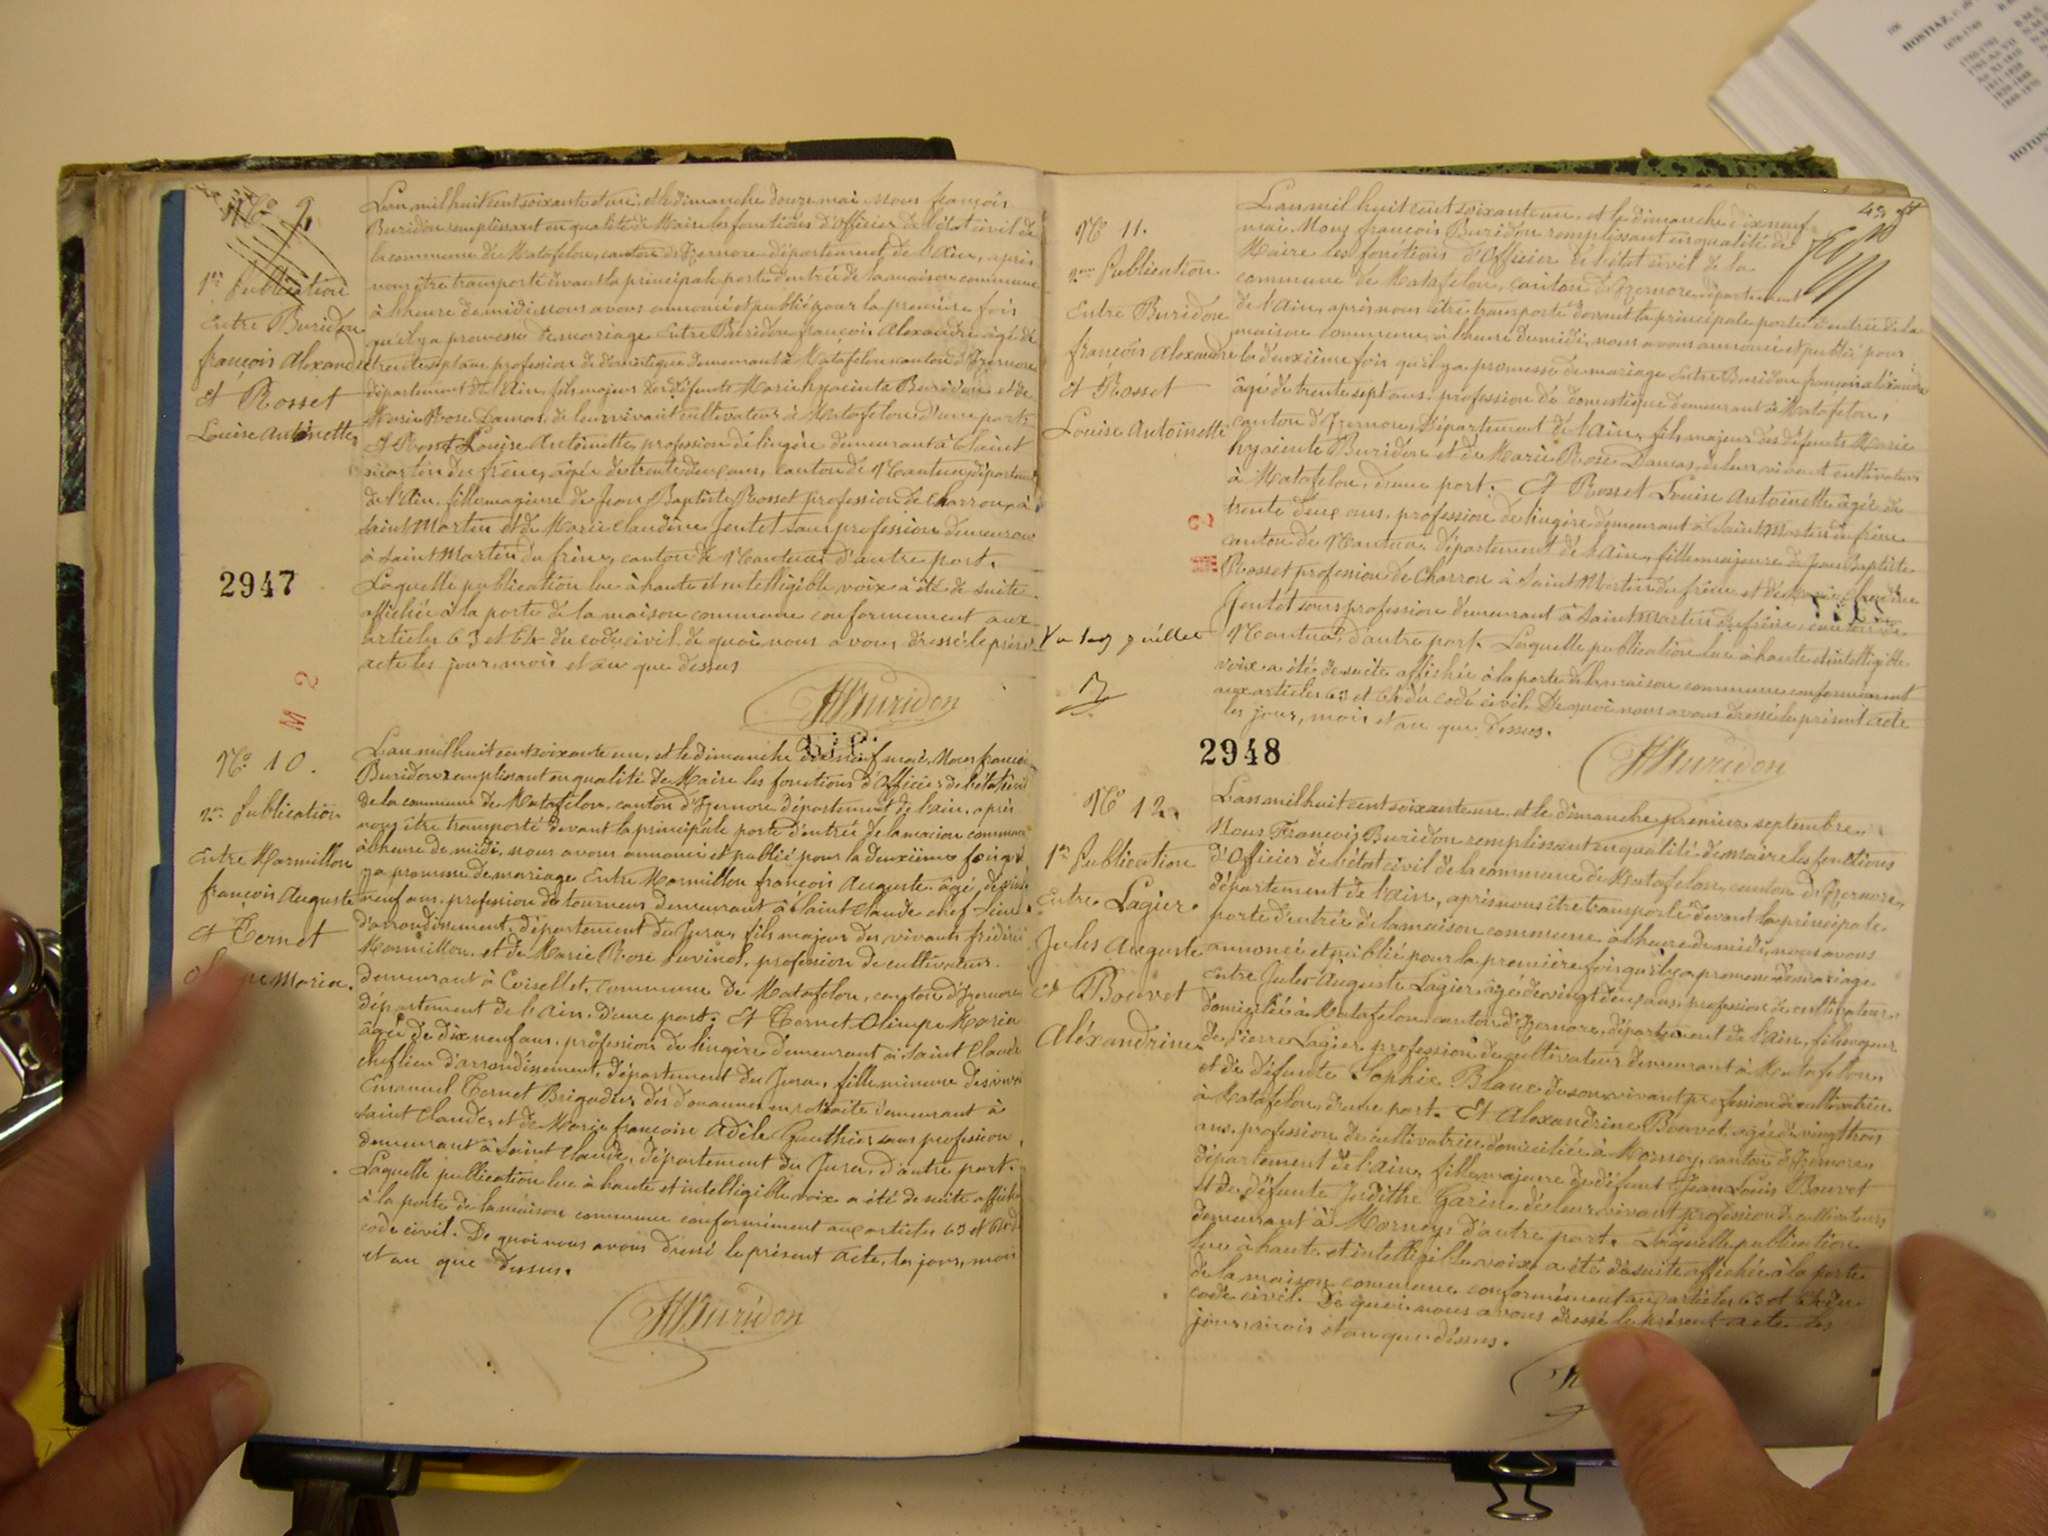 N° 9
1re Publication
Entre Buridon
françois Alexandre
et Rosset
Louise Antoinette
L'an mil huit cent soixante et un, et le dimanche douze mai nous françois
Buridon remplissant en qualité de Maire les fonctions d'Officier de l'état civil de
la commune de Matafelon, canton d'Izernore département de l'Ain, après
nous être transporté devant la principale porte d'entrée de la maison commune
à l'heure de midi, nous avons annoncé et publié pour la première fois
qu'il y a promesse de mariage Entre Buridon françois Alexandre âgé de
trente sept ans, profession de domestique demeurant à Matafelon canton d'Izernore
département de l'Ain, fils majeur des défunts Marie hyacinte Buridon et de
Marie Rose Damas, de leur vivant cultivateur à Matafelon d'une part.
Et Rosset Louise Antoinette, profession de lingère demeurant à Saint
Martin du frêne, âgée de trente deux ans, canton de Nantua, département
de l'Ain, fille majeure de Jean Baptiste Rosset profession de charron, à
Saint Martin et de Marie Claudine Jentet sans profession demeurant
à Saint Martin du frêne, canton de Nantua, d'autre part.
Laquelle publication lue à haute et intelligible voix a été de suite
affichée à la porte de la maison commune conformément aux
articles 63 et 64 du code civil. de quoi nous avons dressé le présent
acte les jour, mois et an que dessus
2947
M 2
Buridon
N° 10.
2me Publication
Entre Marmillon
françois Auguste
et Cornet
Maria.
L'an mil huit cent soixante un, et le dimanche dix neuf mai, Nous françois
Buridon remplissant en qualité de Maire les fonctions d'Officier de l'état civil
de la commune de Matafelon, canton d'Izernore département de l'ain, après
nous être transporté devant la principale porte d'entrée de la maison commune
à l'heure de midi, nous avons annoncé et publié pour la deuxième fois qu'il
y a promesse de mariage Entre Marmillon françois Auguste âgé
neuf ans, profession de tourneur demeurant à Saint Claude chef lieu
d'arrondissement, département du Jura, fils majeur des vivants frédéric
Marmillon, et de Marie Rose profession de cultivateur
demeurant à Coisellet, commune de Matafelon, canton d'Izernore
département de l'ain, d'une part. Et Cornet Olimpe Maria
âgée de dix neuf ans, profession de lingère demeurant à Saint Claude
chef lieu d'arrondissement, département du Jura, fille mineure des vivants
Emanuel Cornet Brigadier des douannes en retraite demeurant à
Saint Claude, et de Marie françoise Adèle Gauthier sans profession,
demeurant à Saint Claude, département du Jura, d'autre part.
Laquelle publication lue à haute et intelligible voix a été de suite affichée
à la porte de la maison commune conformément aux articles 63 et 64 du
code civil. De quoi nous avons dressé le présent acte, les jour, mois
et an que dessus.
Buridon
N° 11.
2me Publication
Entre Buridon
françois Alexandre
et Rosset
Louise Antoinette
L'an mil huit cent soixante un, et le dimanche dix neuf
mai, Nous françois Buridon remplissant en qualité de
Maire les fonctions d'Officier de l'état civil de la
commune de Matafelon, canton d'Izernore, département
de l'Ain, après nous être transporté devant la principale porte d'entrée de la
maison commune, à l'heure de midi, nous avons annoncé et publié pour
la deuxième fois qu'il y a promesse de mariage Entre Buridon françois Alexandre
âgé de trente sept ans, profession de domestique demeurant à Matafelon,
canton d'Izernore, Département de l'Ain, fils majeur des défunts Marie
hyacinte Buridon et de Marie Rose Damas, de leur vivant cultivateurs
à Matafelon, d'une part. Et Rosset Louise Antoinette âgée de
trente deux ans, profession de lingère demeurant à Saint Martin du frêne
canton de Nantua, département de l'Ain, fille majeure de Jean Baptiste
Rosset profession de Charron à Saint Martin du frêne et de Marie Claudine
Jentet sans profession demeurant à Saint Martin du frêne, canton de
Nantua, d'autre part. Laquelle publication lue à haute et intelligible
voix a été de suite affichée à la porte de la maison commune conformément
aux articles 63 et 64 du code civil. De quoi nous avons dressé le présent acte
les jour, mois et an que dessus.
2948
Buridon
N° 12.
1re Publication
Entre Lagier
Jules Auguste
et Bouvet
Aléxandrine
L'an mil huit cent soixante un, et le dimanche premier septembre,
Nous François Buridon remplissant en qualité de Maire les fonctions
d'Officier de l'état civil de la commune de Matafelon, canton d'Izernore,
département de l'Ain, après nous être transporté devant la principale
porte d'entrée de la maison commune à l'heure de midi, nous avons
annoncé et publié pour la première fois qu'il y a promesse de mariage
Entre Jules Auguste Lagier, âgé de vingt deux ans, profession de cultivateur,
domicilié à Matafelon, canton d'Izernore, département de l'Ain, fils majeur
de Pierre Lagier profession de cultivateur demeurant à Matafelon,
et de défunte Sophie Blanc de son vivant profession de cultivatrice
à Matafelon, d'une part. Et Alexandrine Bouvet, âgée de vingt trois
ans, profession de cultivatrice domiciliée à Mornay, canton d'Izernore,
département de l'Ain, fille majeure de défunt Jean Louis Bouvet
et de défunte Judithe Garin, de leur vivant profession de cultivateurs
demeurant à Mornay, d'autre part. Laquelle publication
lue à haute et intelligible voix a été de suite affichée à la porte
de la maison commune conformément aux articles 63 et 64 du
code civil. De quoi nous avons dressé le présent acte les
jour, mois et an que dessus.